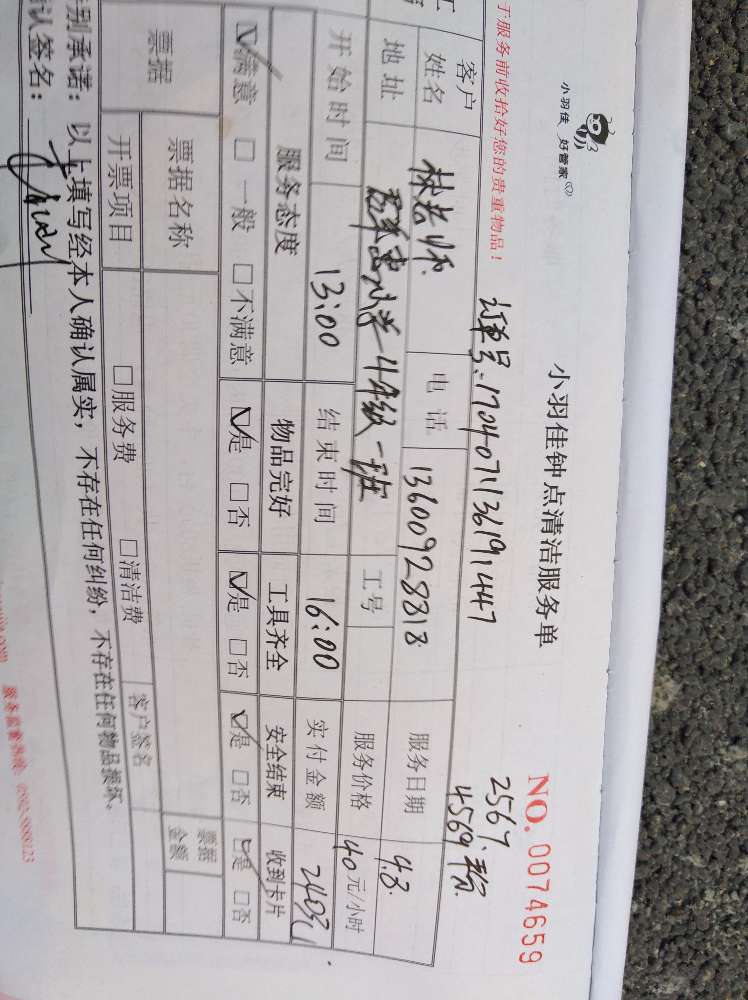 小羽佳 好管家
小羽佳钟点清洁服务单
NO. 0074659
2567.
4569
于服务前收拾好您的贵重物品！
订单号:17040711361191447
客户
姓名
林老师
电话
13600928818
服务日期
4.8
地址
小学4年级一班
工号
服务价格
40元/小时
开始时间
13:00
结束时间
16:00
实付金额
240元
服务态度
物品完好
工具齐全
安全结束
收到卡片
☑满意 □一般 □不满意
☑是 □否
☑是 □否
☑是 □否
☑是 □否
票据
票据名称
票据
金额
开票项目
□服务费 □清洁费
客户签名
别承诺：以上填写经本人确认属实，不存在任何纠纷，不存在任何物品损坏。
认签名：